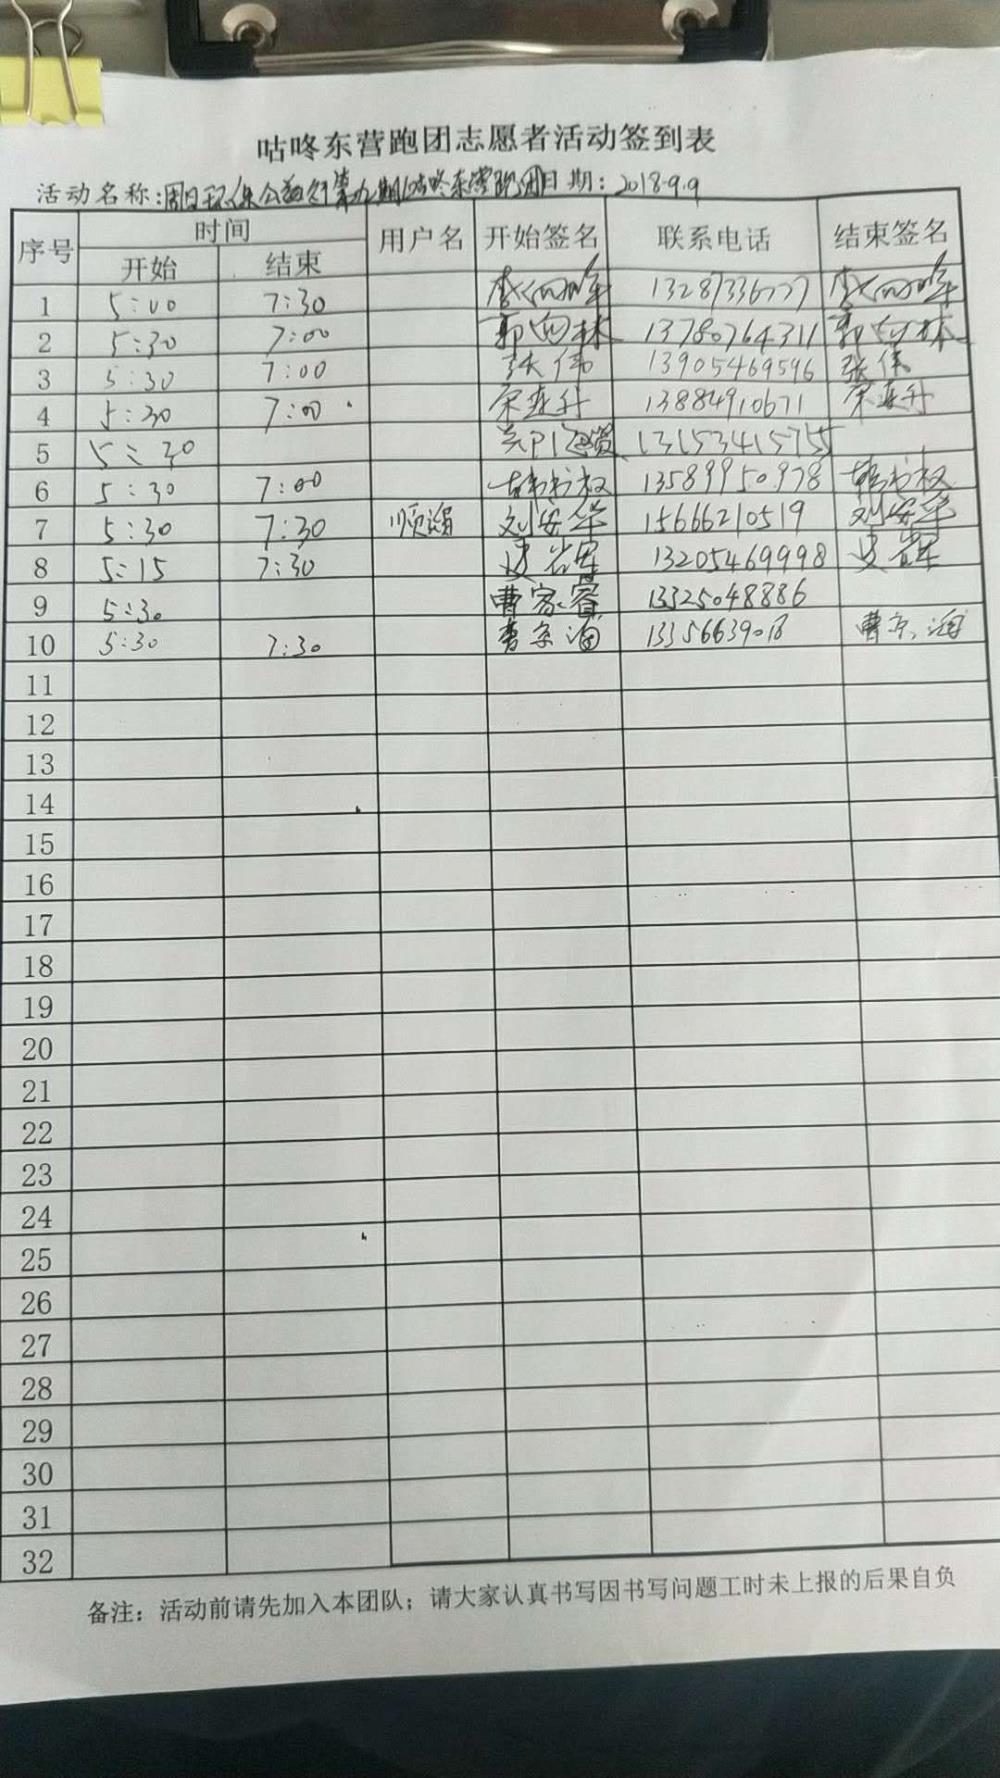 咕咚东营跑团志愿者活动签到表
活动名称:周日环保公益行第九期(咕咚东营跑团 日期：2018.9.9
序号 时间 用户名 开始签名 联系电话 结束签名
开始 结束
1 5:00 7:30 13287336777
2 5:30 7:00 郭向林 13780764311 郭向林
3 5:30 7:00 张伟 13905469596 张伟
4 5:30 7:00 荣连升 13884910671 荣连升
5 5:30 13153415755
6 5:30 7:00 韩书权 13589950978 韩书权
7 5:30 7:30 顺涓 刘安华 15666210519 刘安华
8 5:15 7:30 13205469998
9 5:30 曹家睿 13325048886
10 5:30 7:30 曹京海 13356639018 曹京海
11
12
13
14
15
16
17
18
19
20
21
22
23
24
25
26
27
28
29
30
31
32
备注：活动前请先加入本团队；请大家认真书写因书写问题工时未上报的后果自负